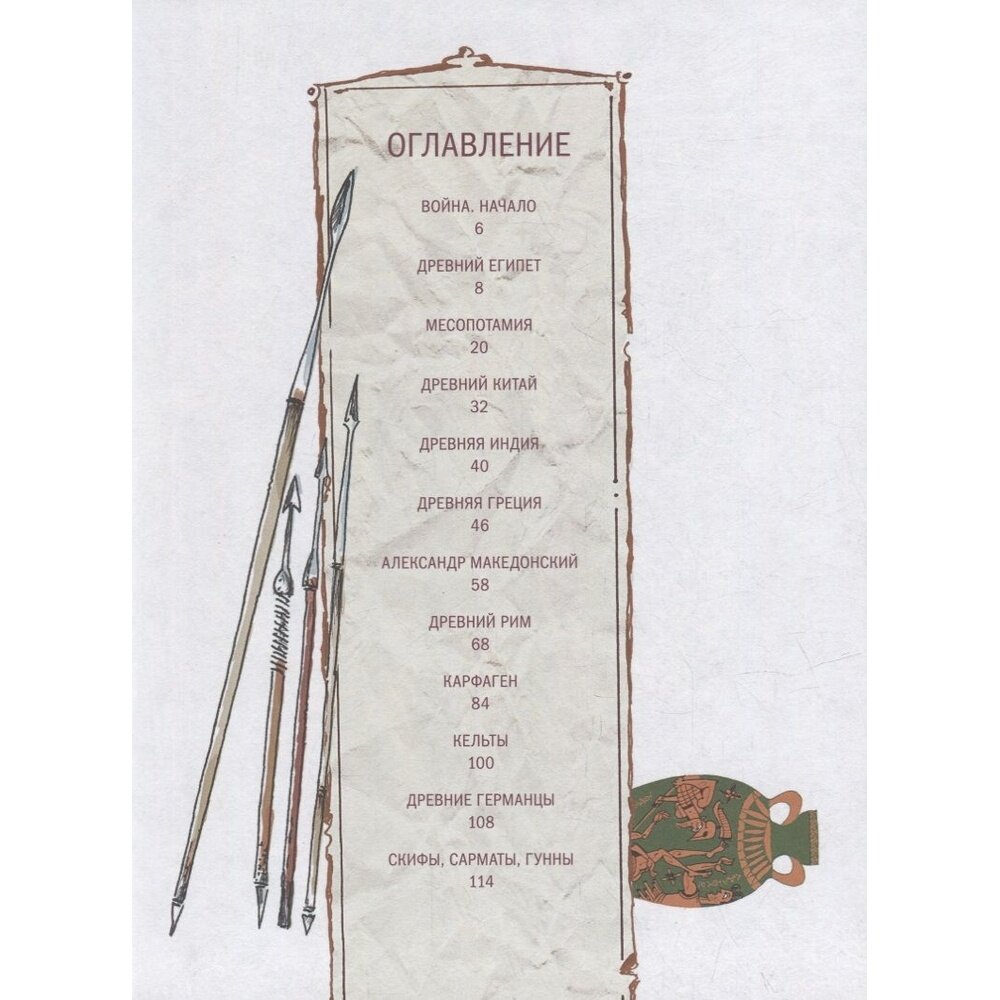 ОГЛАВЛЕНИЕ
ВОЙНА. НАЧАЛО
6
ДРЕВНИЙ ЕГИПЕТ
8
МЕСОПОТАМИЯ
20
ДРЕВНИЙ КИТАЙ
32
ДРЕВНЯЯ ИНДИЯ
40
ДРЕВНЯЯ ГРЕЦИЯ
46
АЛЕКСАНДР МАКЕДОНСКИЙ
58
ДРЕВНИЙ РИМ
68
КАРФАГЕН
84
КЕЛЬТЫ
100
ДРЕВНИЕ ГЕРМАНЦЫ
108
СКИФЫ, САРМАТЫ, ГУННЫ
114